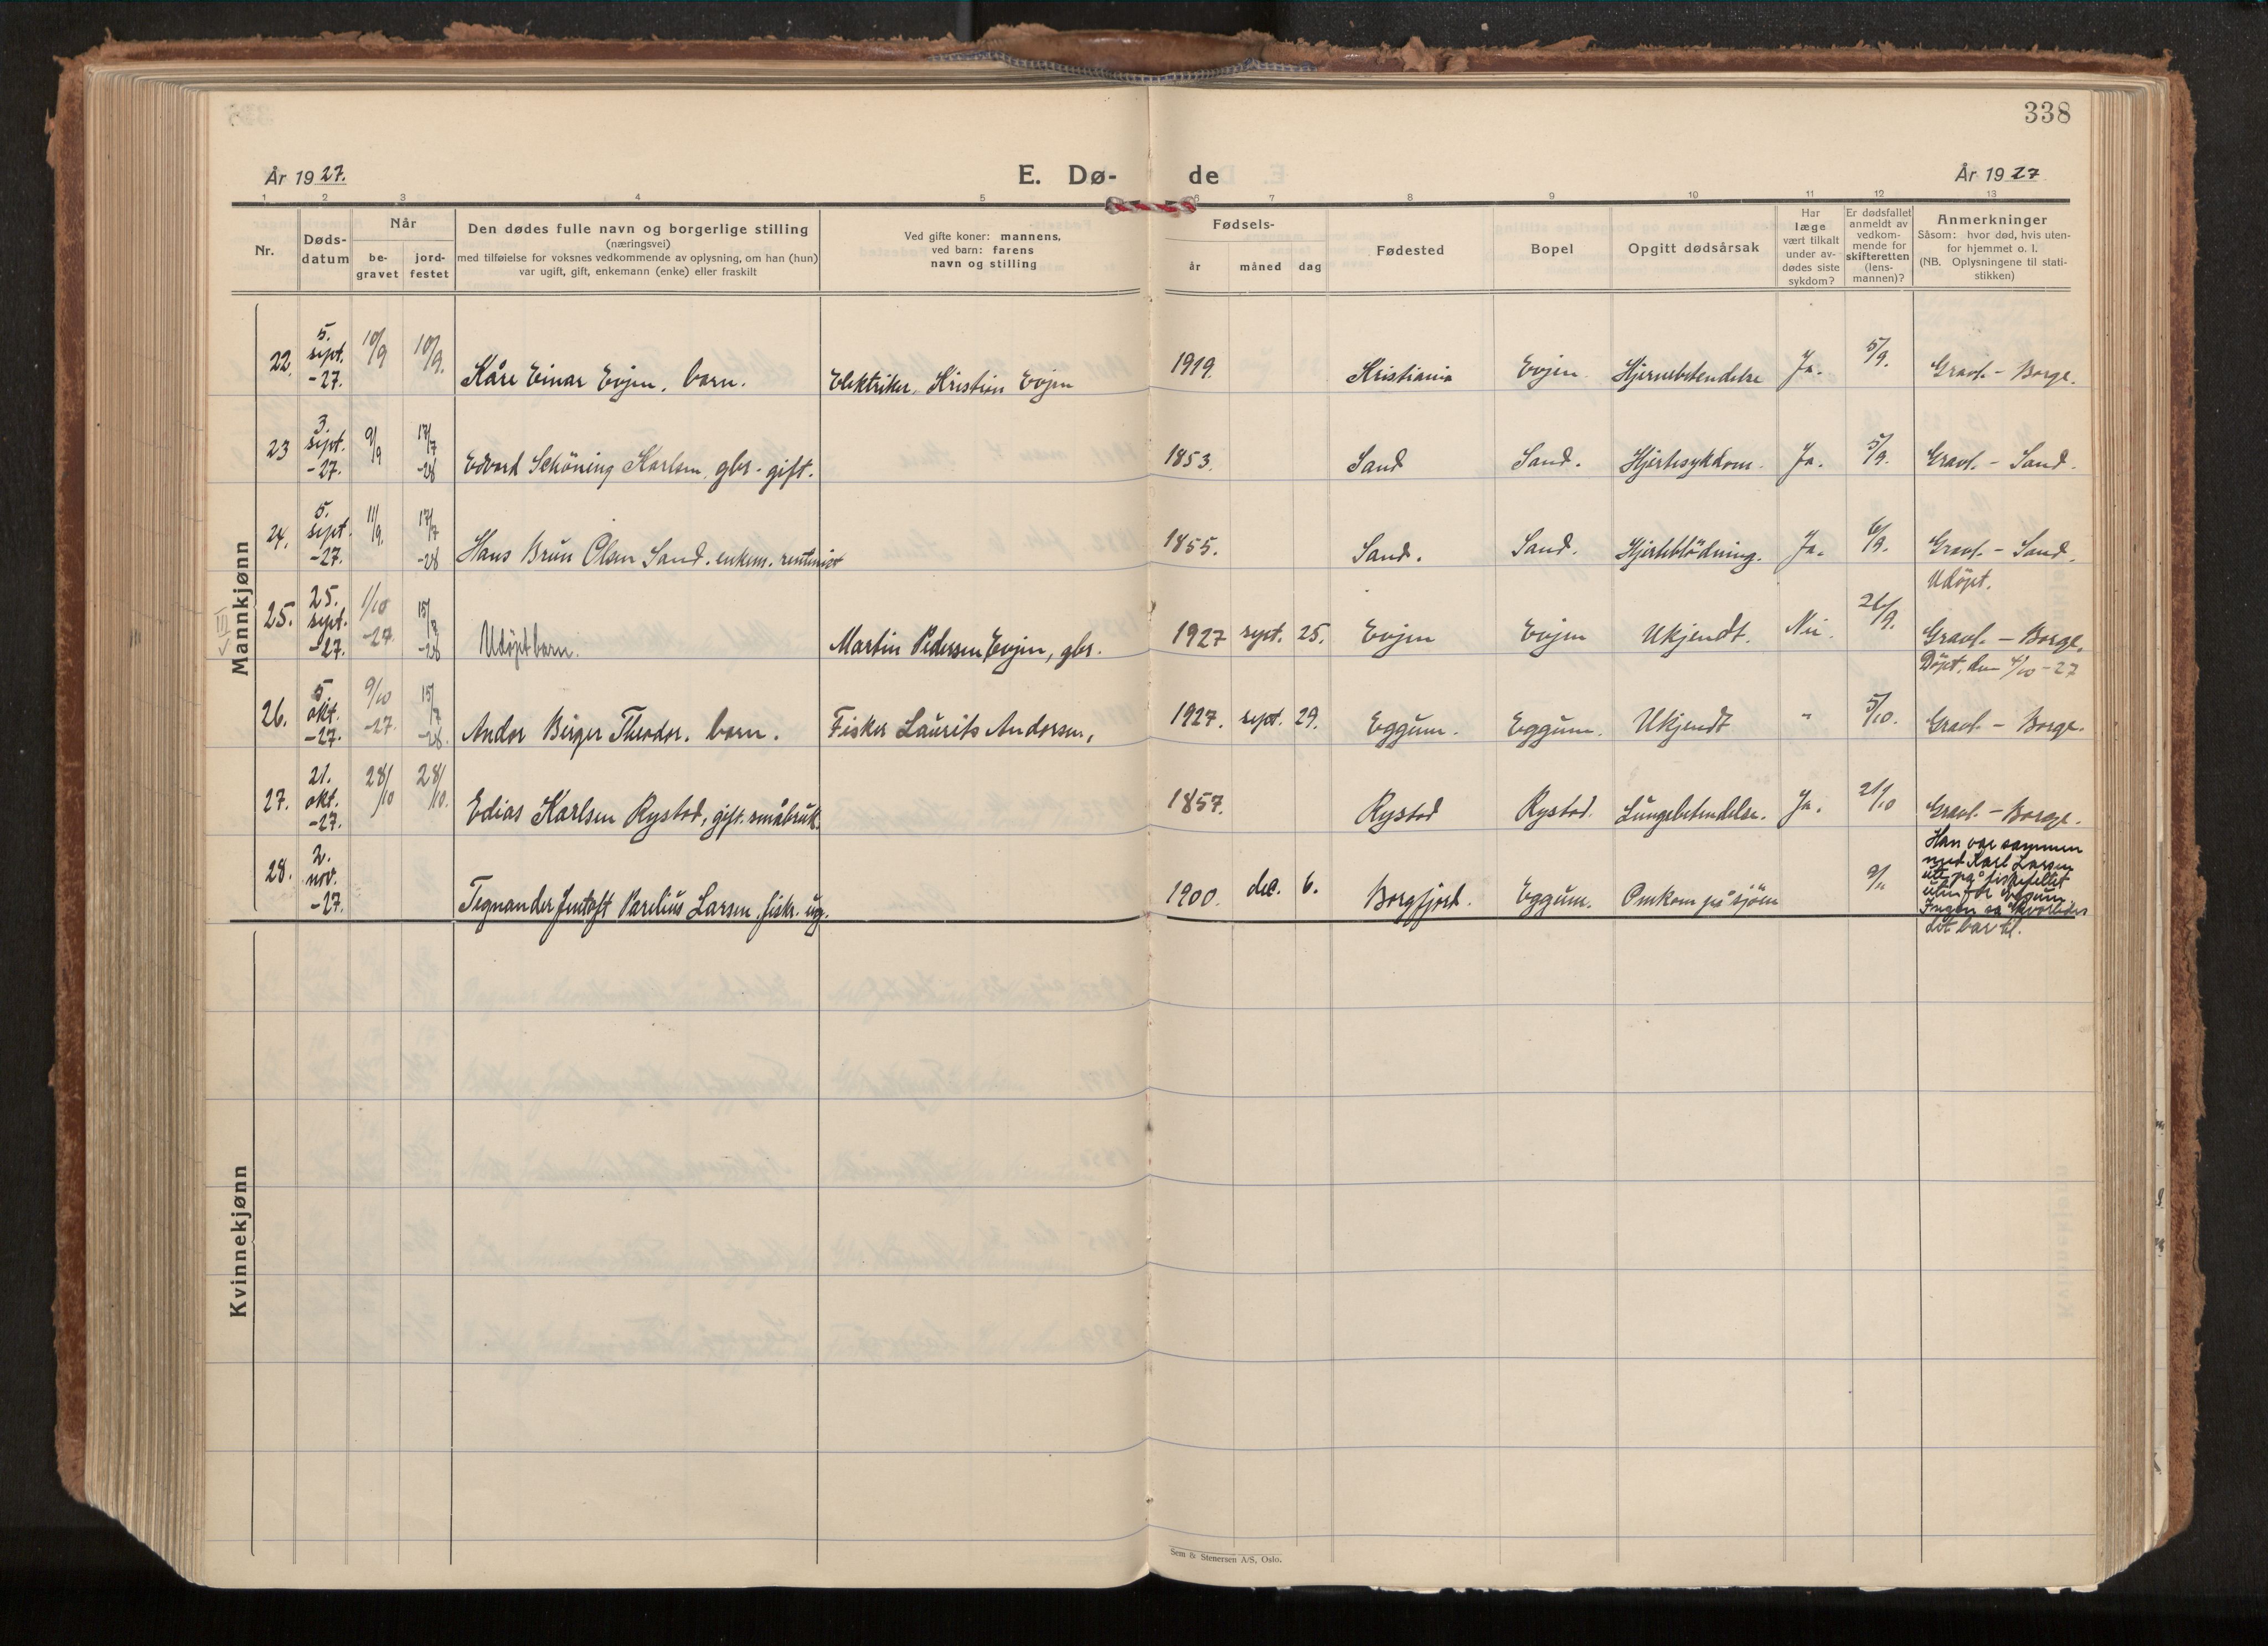 338
År 1927.
E. Dø-
de
År 1927
1 2 3 4 5 6 7 8 9 10 11 12 13
Nr.
Døds-
datum
Når
be-
gravet
jord-
festet
Den dødes fulle navn og borgerlige stilling
(næringsvei)
med tilføielse for voksnes vedkommende av oplysning, om han (hun)
var ugift, gift, enkemann (enke) eller fraskilt
Ved gifte koner: mannens,
ved barn: farens
navn og stilling
Fødsels-
år måned dag
Fødested
Bopel
Opgitt dødsårsak
Har
læge
vært tilkalt
under av-
dødes siste
sykdom?
Er dødsfallet
anmeldt av
vedkom-
mende for
skifteretten
(lens-
mannen)?
Anmerkninger
Såsom: hvor død, hvis uten-
for hjemmet o. l.
(NB. Oplysningene til stati-
stikken)
Mannkjønn
22. 5. sept. -27. 10/9 10/9. Kåre Einar Evjen, barn. Elektriker, Kristian Evjen 1919. Kristiania Evjen Hjernebetendelse Ja. 5/9. Gravl. - Borge.
23 3. sept. -27. 9/9 17/7 -28 Edvard Schöning Karlsen, gbr. gift. 1853. Sand Sand. Hjertesykdom. Ja. 5/9. Gravl. - Sand.
24. 5. sept. -27. 11/9. 17/7 -28 Hans Brun Olsen Sand. enkem. rentenist 1855. Sand. Sand. Hjerteblödning. Ja. 6/9. Gravl. - Sand.
Udöpt.
25. 25. sept. -27. 1/10 -27. 15/7 -28 Udöpt barn. Martin Pedersen Evjen, gbr. 1927 sept. 25. Evjen Evjen Ukjendt. Nei. 26/9. Gravl. - Borge.
Döpt. den 4/10 -27
26. 5. okt. -27. 9/10 -27. 15/7 -28. Andor Birger Theodor. barn. Fisker Laurits Andersen, 1927. sept. 29. Eggum. Eggum. Ukjendt " 5/10. Gravl. - Borge.
27. 21. okt. -27. 28/10 28/10. Edias Karlsen Rystad, gift. småbruk. 1857. Rystad Rystad. Lungebetendelse. Ja. 21/10 Gravl. - Borge.
28. 2. nov. -27. Tegnander Jentoft Parelius Larsen, fisker. ug. 1900. dec. 6. Borgfjord. Eggum. Omkom på sjöen 9/11 Han var sammen
med Karl Larsen
ute på fiskefeltet
utenfor Eggum
Ingen så hvorledes
det bar til.
Kvinnekjønn
Sem & Stenersen A/S, Oslo.